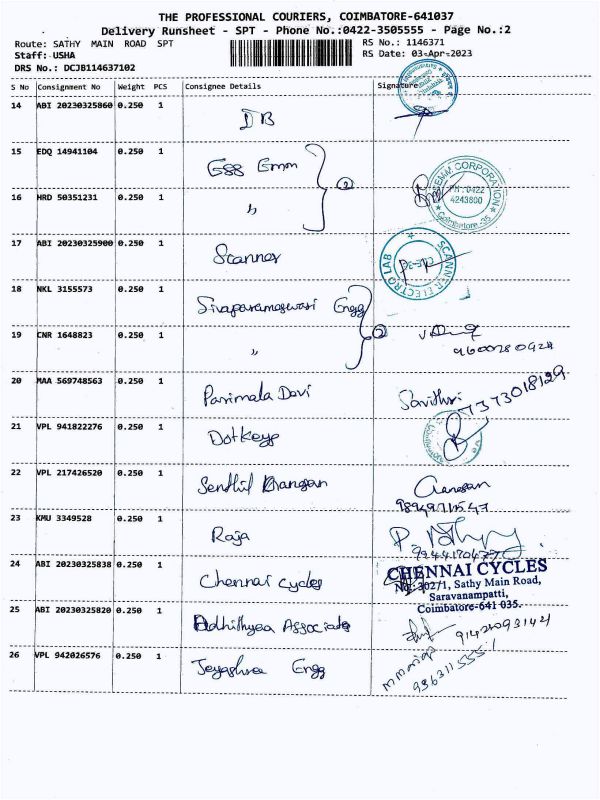 THE PROFESSIONAL COURIERS, COIMBATORE-641037
Delivery Runsheet - SPT - Phone No.:0422-3505555 - Page No.:2
Route: SATHY MAIN ROAD SPT RS No.: 1146371
Staff: USHA RS Date: 03-Apr-2023
DRS No.: DCJB114637102
S No Consignment No Weight PCS Consignee Details Signature
14 ABI 20230325860 0.250 1 IB
15 EDQ 14941104 0.250 1 Egg Emm
16 HRD 50351231 0.250 1 " 2
EMM CORPORATION
PH : 0422
4243800
Coimbatore-35
17 ABI 20230325900 0.250 1 Scanner
SCANNER ELECTRO LAB
18 NKL 3155573 0.250 1 Sivaparameswari Engg
19 CNR 1648823 0.250 1 " 2
9600280928
20 MAA 569748563 0.250 1 Parimala Devi Savithri
7373018129
21 VPL 941822276 0.250 1 Dotkeys
22 VPL 217426520 0.250 1 Senthil Ganesan
23 KMU 3349528 0.250 1 Raja
24 ABI 20230325838 0.250 1 Chennai cycles
CHENNAI CYCLES
No: 302/1, Sathy Main Road,
Saravanampatti,
Coimbatore-641 035.
25 ABI 20230325820 0.250 1 Adhithyea Associate
26 VPL 942026576 0.250 1 Jeyashree Engg